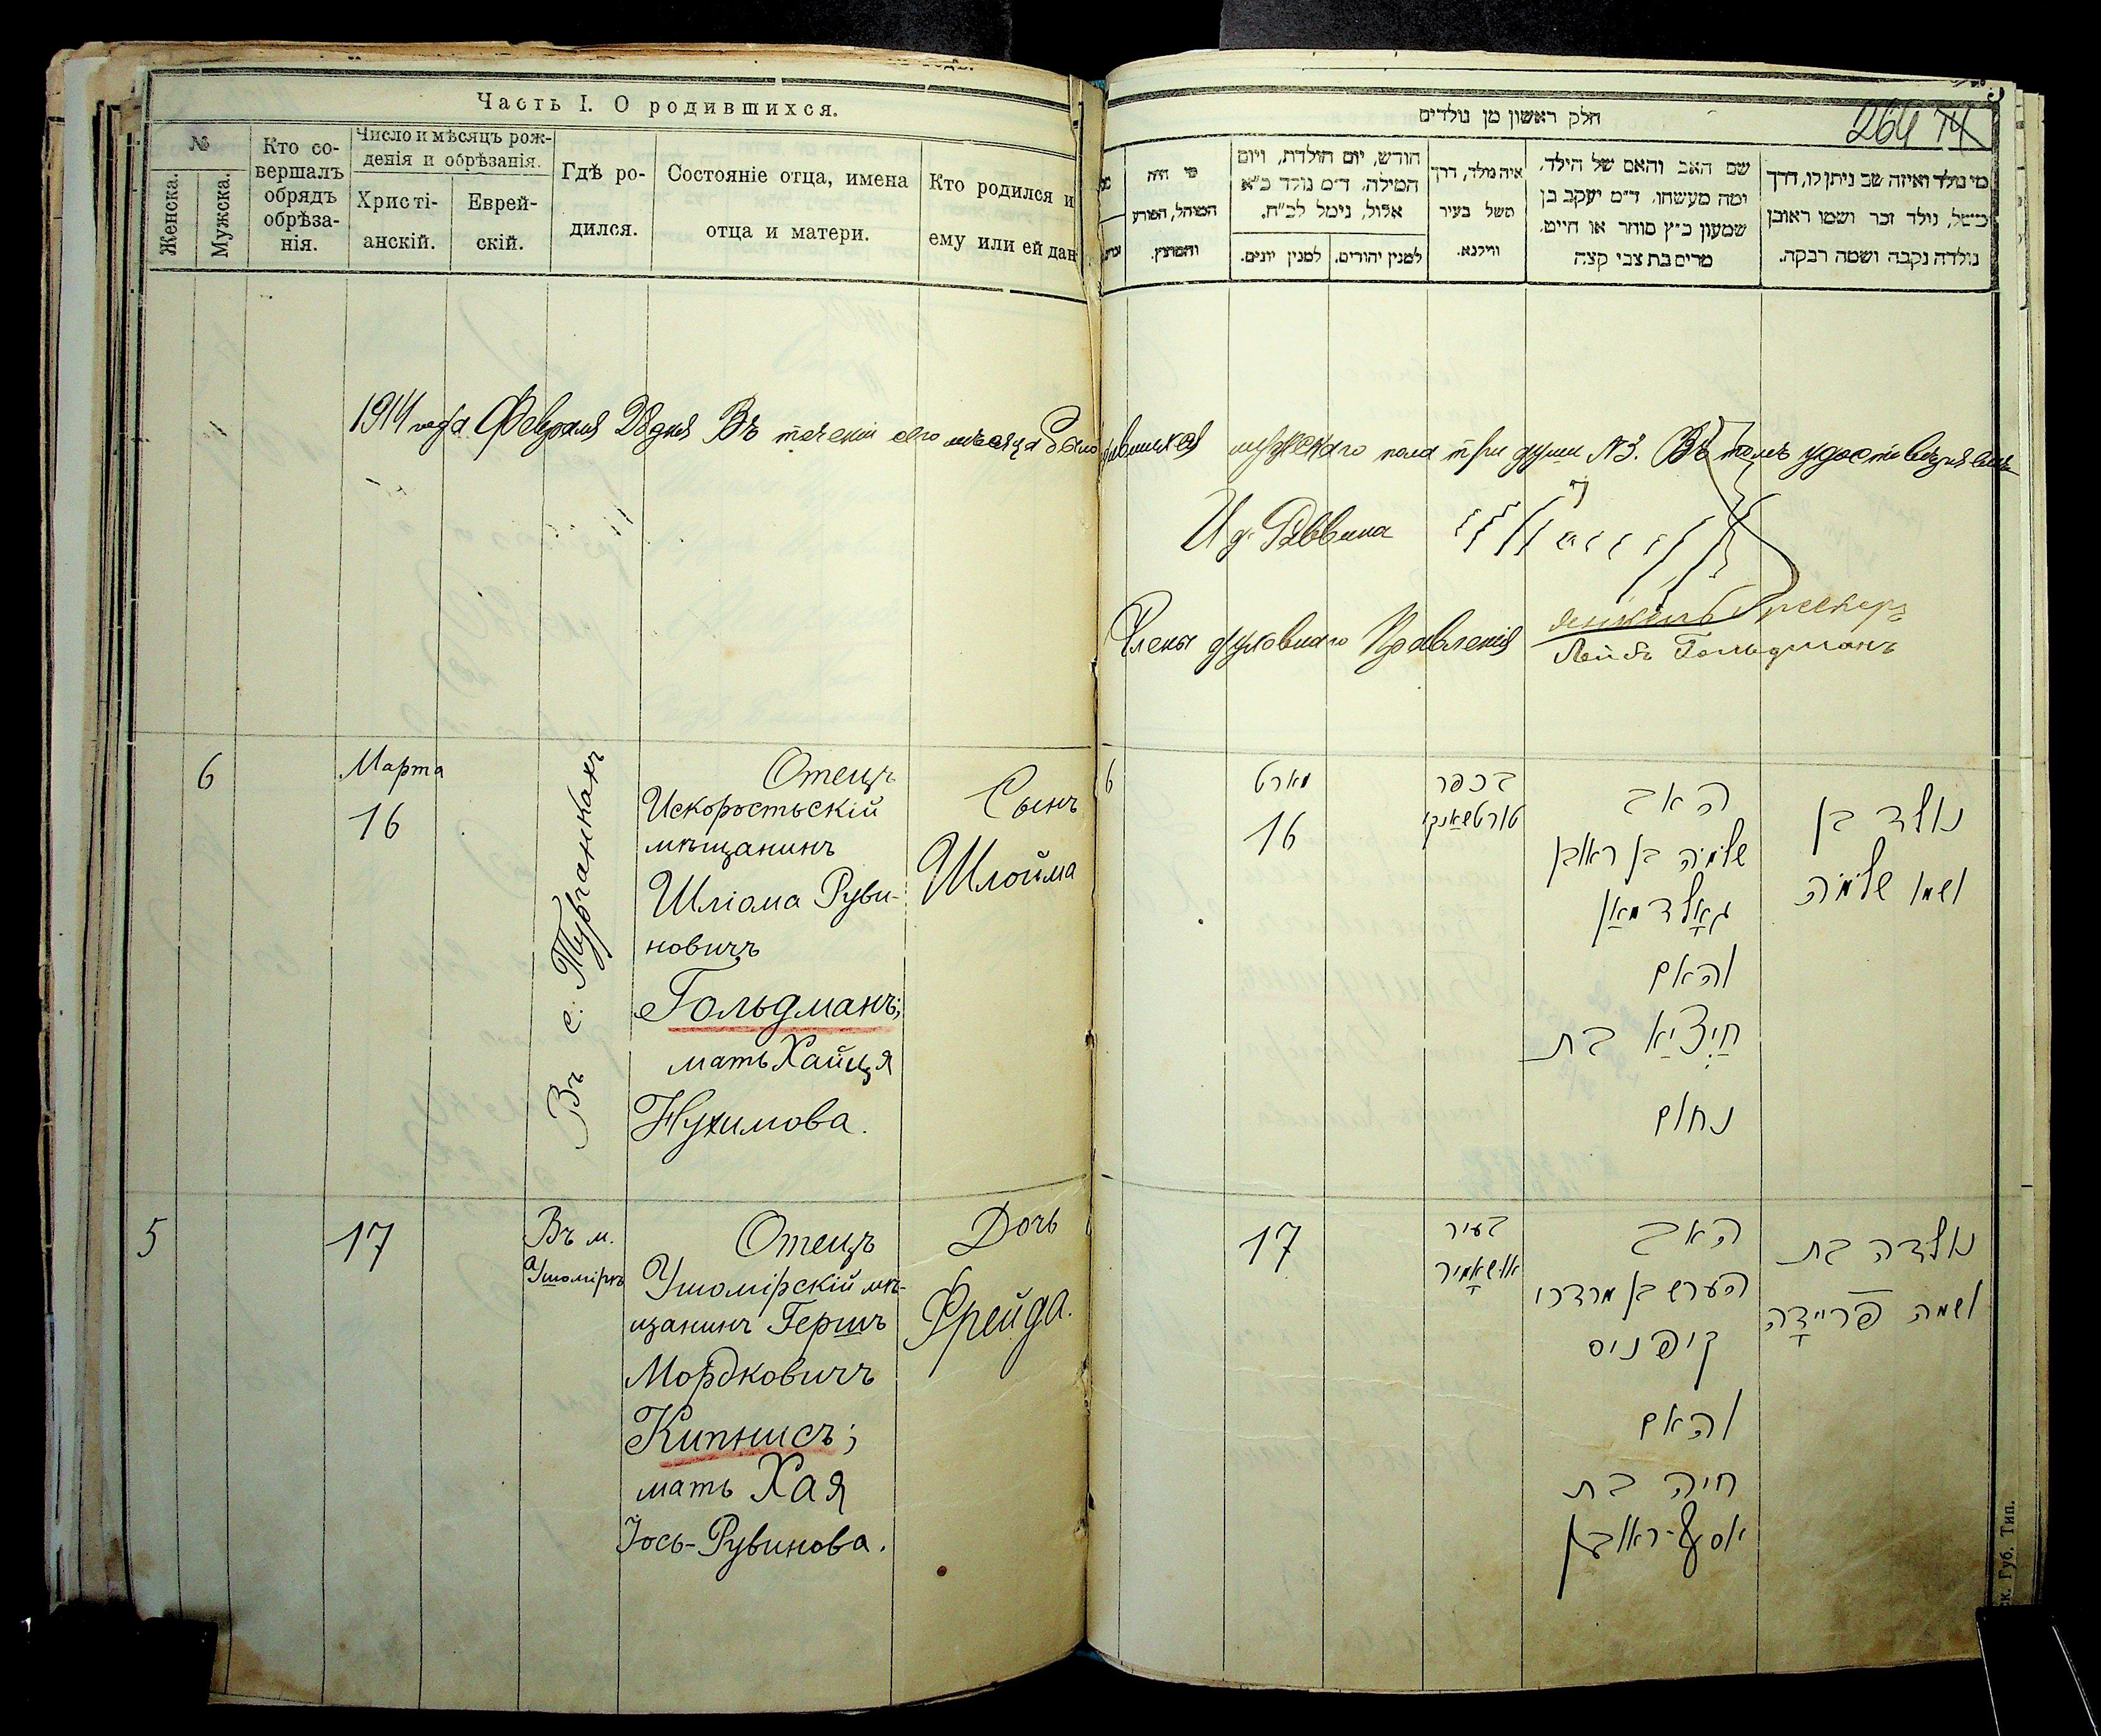 Часть I. О родившихся.
№
Женска.
Мужска.
Кто со-
вершалъ
обрядъ
обрѣза-
нія.
Число и мѣсяцъ рож-
денія и обрѣзанія.
Христі-
анскій.
Еврей-
скій.
Гдѣ ро-
дился.
Состояніе отца, имена
отца и матери.
Кто родился и
ему или ей дан
1914 года Февраля 28 дня Въ теченіи сего мѣсяца было
6
Марта
16
Въ с. Турчанкахъ
Отецъ
Искоростьскій
мѣщанинъ
Шліома Руви-
новичъ
Гольдманъ;
мать Хайця
Нухимова.
Сынъ
Шлойма
5
17
Въ м.
Ушомірѣ
Отецъ
Ушомірскій мѣ-
щанинъ Гершъ
Мордковичъ
Кипнисъ;
мать Хая
Іось-Рувинова.
Дочь
Фрейда.
חלק ראשון מן נולדים
264 74
מי נולד ואיזה שם ניתן לו, דרך
משל, נולד זכר ושמו ראובן
נולדה נקבה ושמה רבקה.
שם האב והאם של הילד,
ומה מעשהו, ד״מ יעקב בן
שמעון כ״ץ סוחר או חייט,
מרים בת צבי קצה
איה נולד, דרך
משל בעיר
ווילנא.
חודש, יום הולדת, ויום
המילה, ד״מ נולד כ״א
אלול, נימל לכ״ח.
למנין יהודים.
למנין יונים.
מי היה
המוהל, הפורע
והמוצץ.
мужскаго пола три души №3. Въ томъ удостовѣряемъ
И д. Раввина
Члены духовнаго Правленія
Лейбъ Гольдманъ
6
מארט
16
בכפר
טורטשאנקי
האב
שלמה בן ראובן
גאָלדמאַן
והאם
חייציא בת
נחום
נולד בן
ושמו שלמה
17
בעיר
אושאָמיר
האב
הערש בן מרדכי
קיפניס
והאם
חיה בת
יוסף-ראובן
נולדה בת
ושמה פריידה
ск. Губ. Тип.